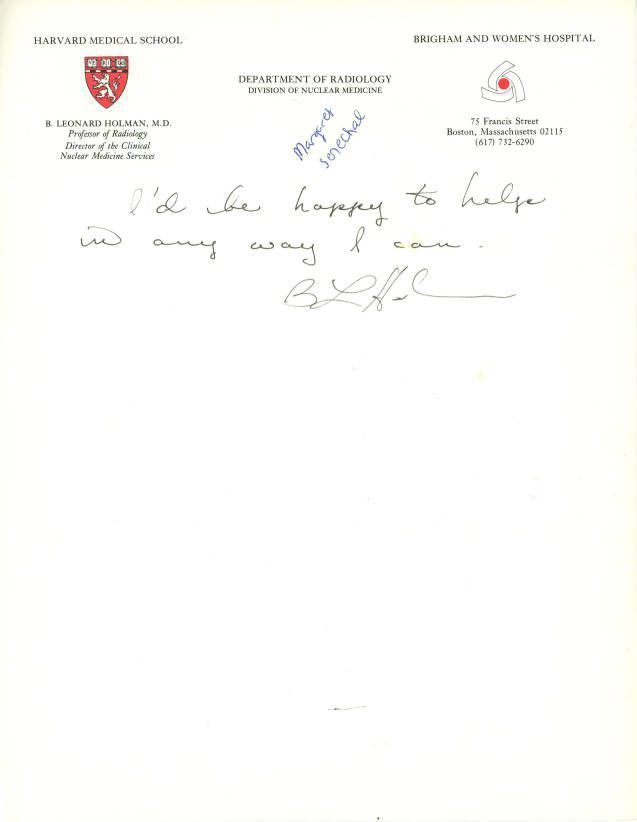 HARVARD MEDICAL SCHOOL
BRIGHAM AND WOMEN'S HOSPITAL
DEPARTMENT OF RADIOLOGY
DIVISION OF NUCLEAR MEDICINE
B. LEONARD HOLMAN, M.D.
Professor of Radiology
Director of the Clinical
Nuclear Medicine Services
75 Francis Street
Boston, Massachusetts 02115
(617) 732-6290
Margaret
Senechal
I'd be happy to help
in any way I can.
B L Hol